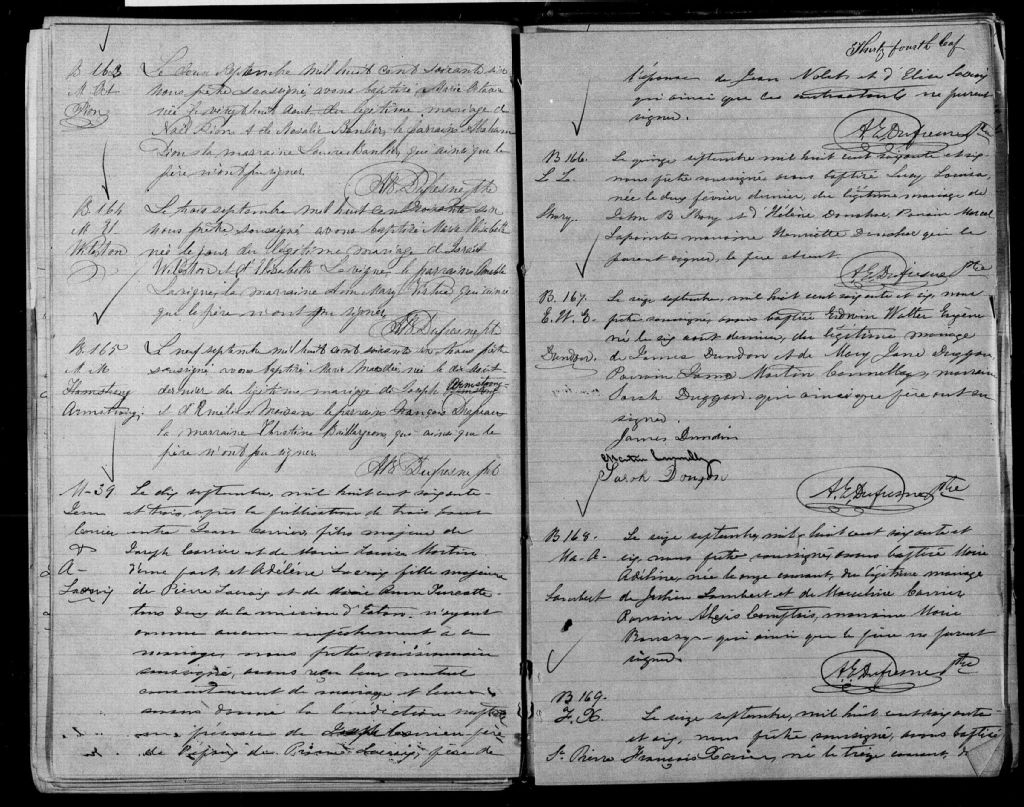 B 163
M Oct
Dion
Le deux Septembre mil huit cent soixante six
nous, prêtre soussigné, avons baptisé Marie Octavie
née le vingt huit Aout du légitime mariage de
Noël Dion et de Rosalie Boulier, le parrain Abraham
Dion la marraine Louise Boulier, qui ainsi que le
père n'ont pu signer.
A E Dufresne ptr
B 164
M E.
Wilston
Le trois septembre mil huit cent soixante six
nous prêtre soussigné avons baptisé Marie Elisabeth
née le jour du légitime mariage d'Israël
Wilston et d'Elisabeth Lavigne, le parrain
Lavigne, la marraine Mary qui ainsi
que le père n'ont pu signer
A E Dufresne ptr
B 165
M M
Armstrong
Le neuf septembre mil huit cent soixante six nous prêtre
soussigné avons baptisé Marie née le dix Aout
dernier du légitime mariage de Joseph Armstrong
et d' le parrain François Drapeau
la marraine Christine Baillargeon, qui ainsi que le
père n'ont pu signer
A E Dufresne ptr
M-39
Jean
Carrier
&
A-
Lacroix
Le dix septembre, mil huit cent soixante
et trois, après la publication de trois bans
entre Jean Carrier, fils majeur de
Joseph Carrier et de Marie Louise Martin
d'une part, et Adéline Lacroix fille majeure
de Pierre Lacroix et de Marie Anne Turcotte
tous deux de la mission d' n'ayant
aucun empêchement à ce
mariage, nous prêtre missionnaire
soussigné, avons reçu leur mutuel
consentement de mariage et leur
avons donné la bénédiction nuptiale
en présence de Joseph Carrier père
de l'époux de Pierre Lacroix, père de
Thirty fourth leaf
l'épouse de Jean Nolet et d'Elise Lacroix
qui ainsi que les contractants ne purent
signer.
A.E. Dufresne Ptre
B 166.
L L.
Story.
Le quinze septembre mil huit cent soixante et six
nous prêtre soussigné avons baptisé Lucy Louisa,
née le deux février dernier, du légitime mariage de
John B Story et d'Hélène Donahue. Parrain Marcel
Lapointe marraine Henriette Donahue qui ne
purent signer, le père absent
A E Dufresne Ptre
B. 167.
E. W. E-
Dundon.
Le seize septembre, mil huit cent soixante et six, nous
prêtre soussigné, avons baptisé Edwin Walter Eugène
né le six aout dernier, du légitime mariage
de James Dundon et de Mary Jane Duggan,
Parrain James Martin Connelly, marraine
Sarah Duggan qui ainsi que père ont su
signer.
James Dundon
Martin Connelly
Sarah Dougon
A.E Dufresne Ptre
B 168.
Ma-A-
Lambert
Le seize septembre, mil huit cent soixante et
six, nous prêtre soussigné avons baptisé Marie
Adéline, née le onze courant, du légitime mariage
de Lambert et de Marceline Carrier
Parrain Alexis Comptois, marraine Marie
qui ainsi que le père ne purent
signer.
A.E. Dufresne Ptre
B 169.
F. X.
St. Pierre
Le seize septembre, mil huit cent soixante
et six, nous prêtre soussigné, avons baptisé
François Xavier, né le treize courant, d